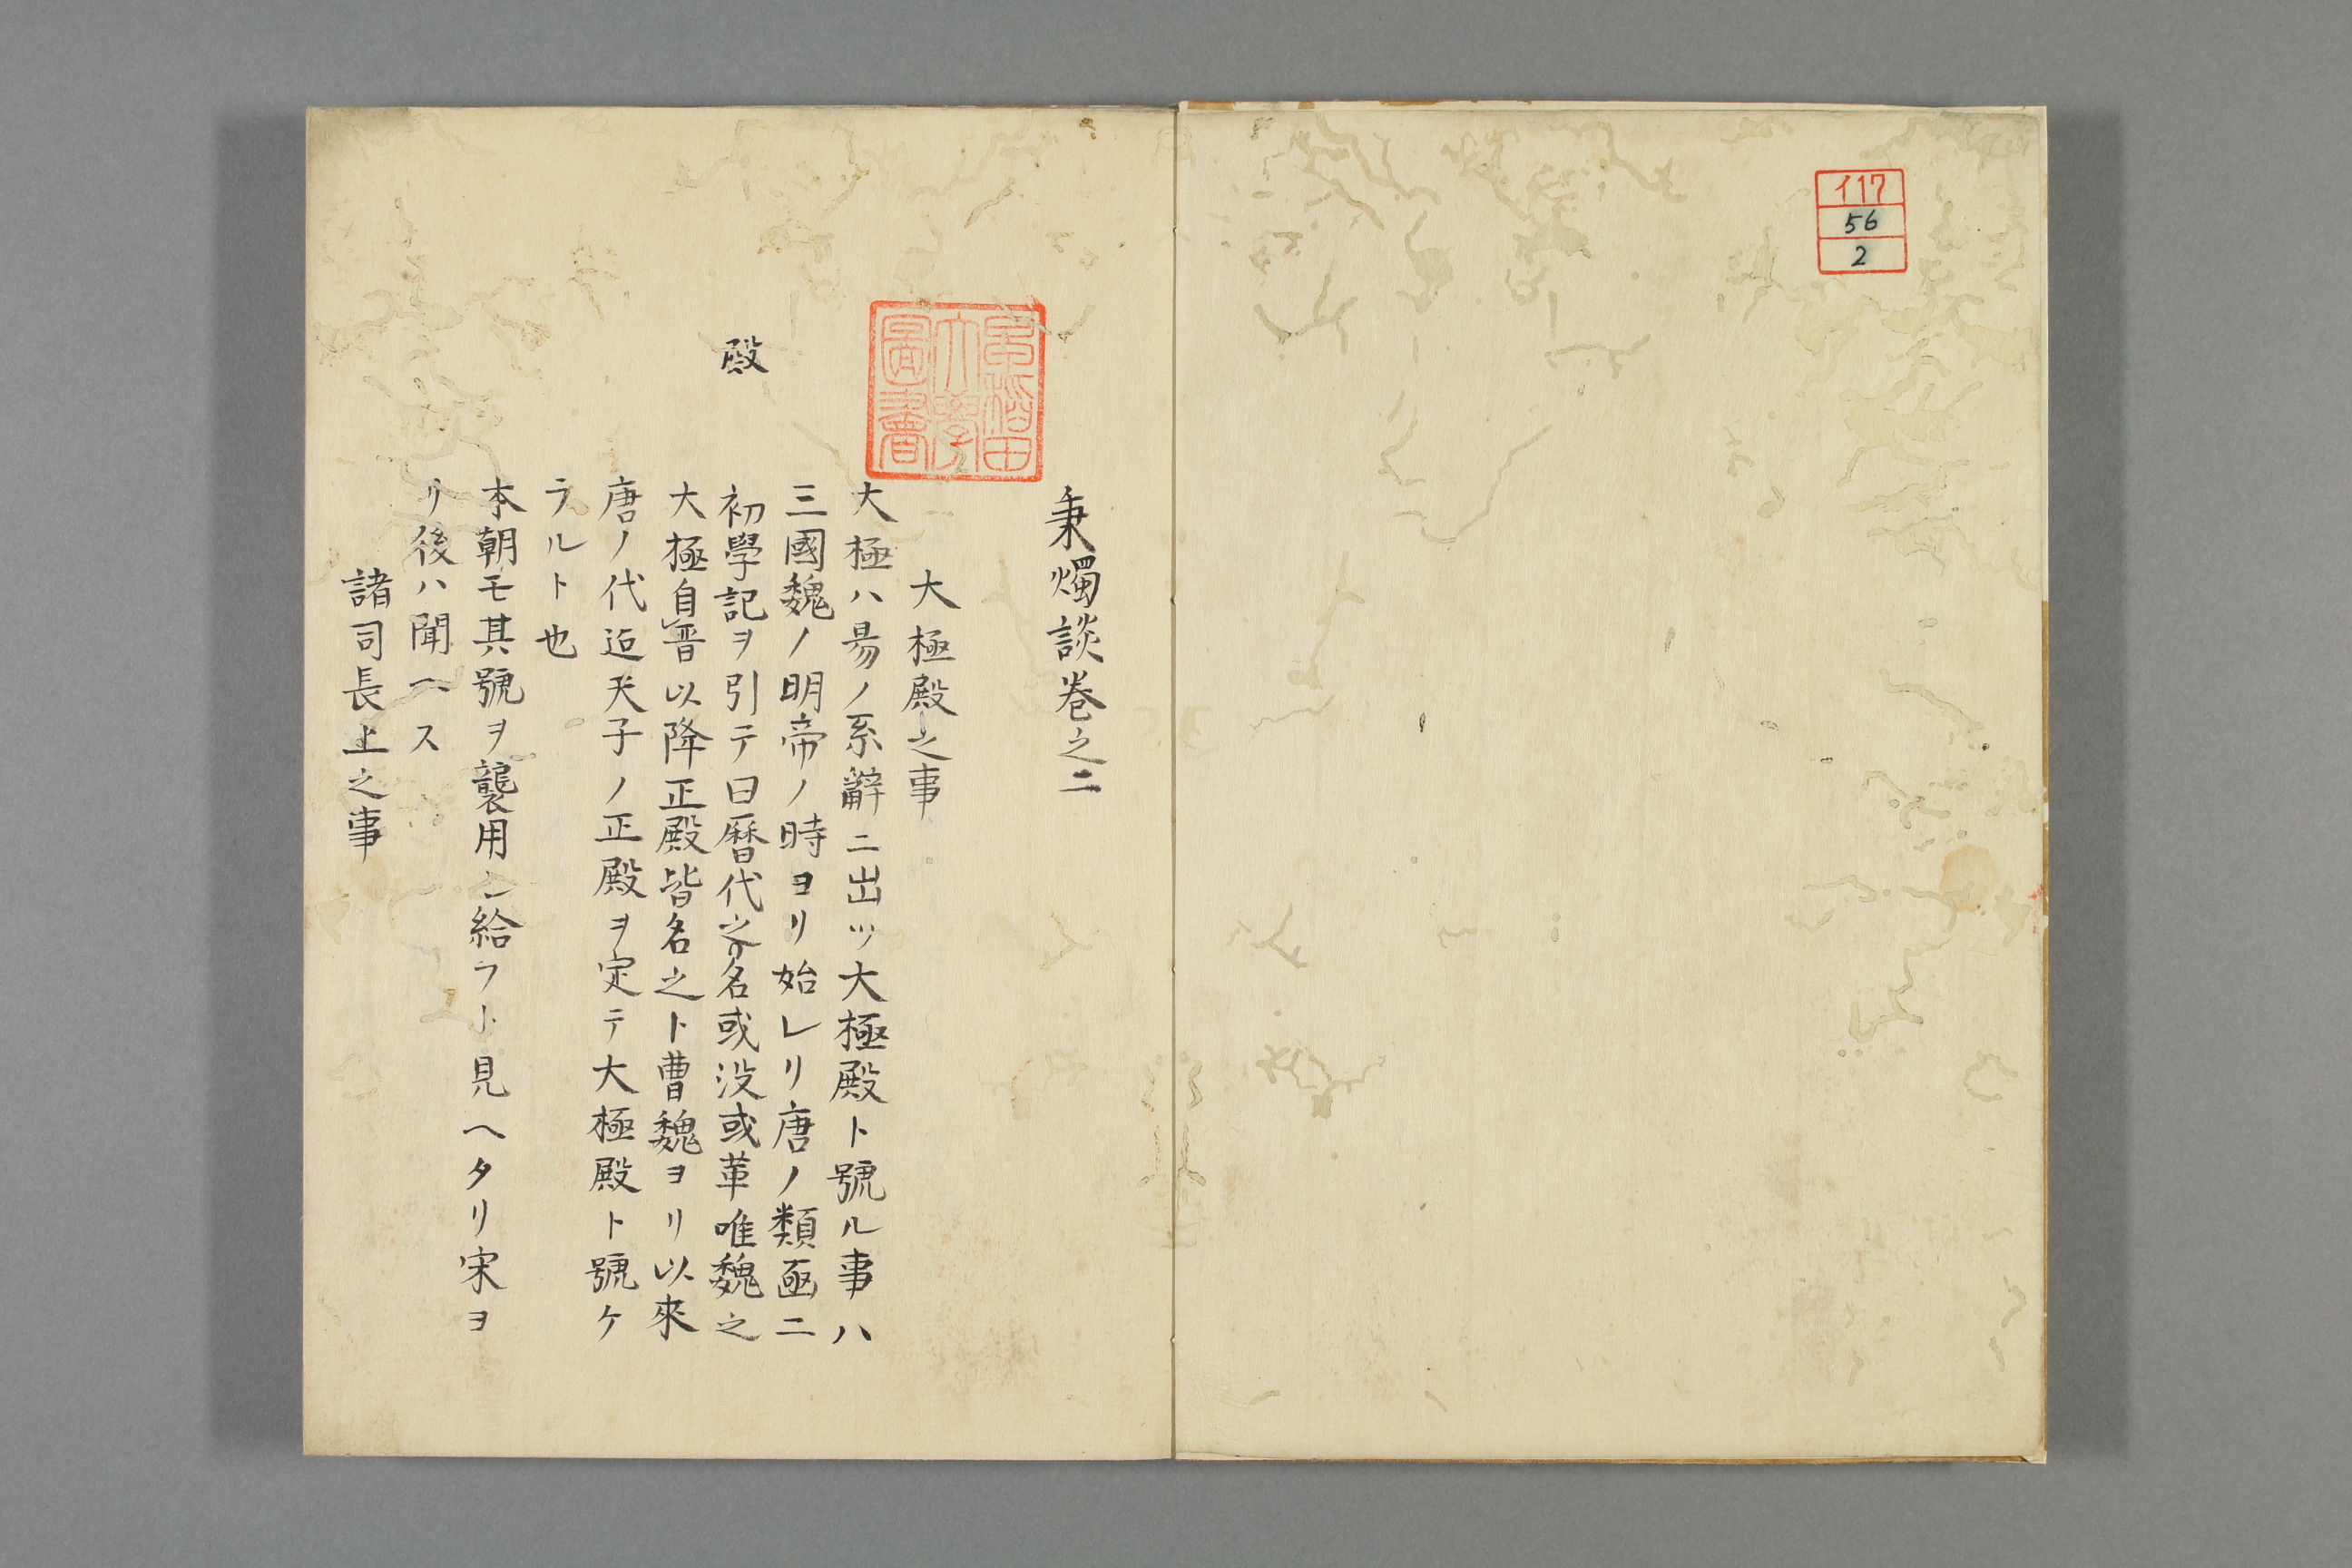 イ17
56
2
早稲田
大學
圖書
秉燭談巻之二
大極殿之事
大極ハ易ノ系辭ニ出ツ大極殿ト號ル事ハ
三國魏ノ明帝ノ時ヨリ始レリ唐ノ類函ニ
殿
初學記ヲ引テ曰暦代之名或没或革唯魏之
大極自晋以降正殿皆名之ト曹魏ヨリ以來
唐ノ代迄天子ノ正殿ヲ定テ大極殿ト號ケ
ラルト也
本朝モ其號ヲ襲用シ給フト見ヘタリ宋ヨ
リ後ハ聞ヘス
諸司長上之事